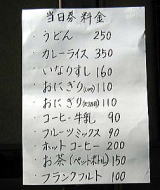 当日券 料金
・うどん 250
・カレーライス 350
・いなりすし 160
・おにぎり 110
・おにぎり 110
・コーヒー牛乳 90
・フルーツミックス 90
・ホットコーヒー 200
・お茶(ペットボトル) 150
・フランクフルト 100